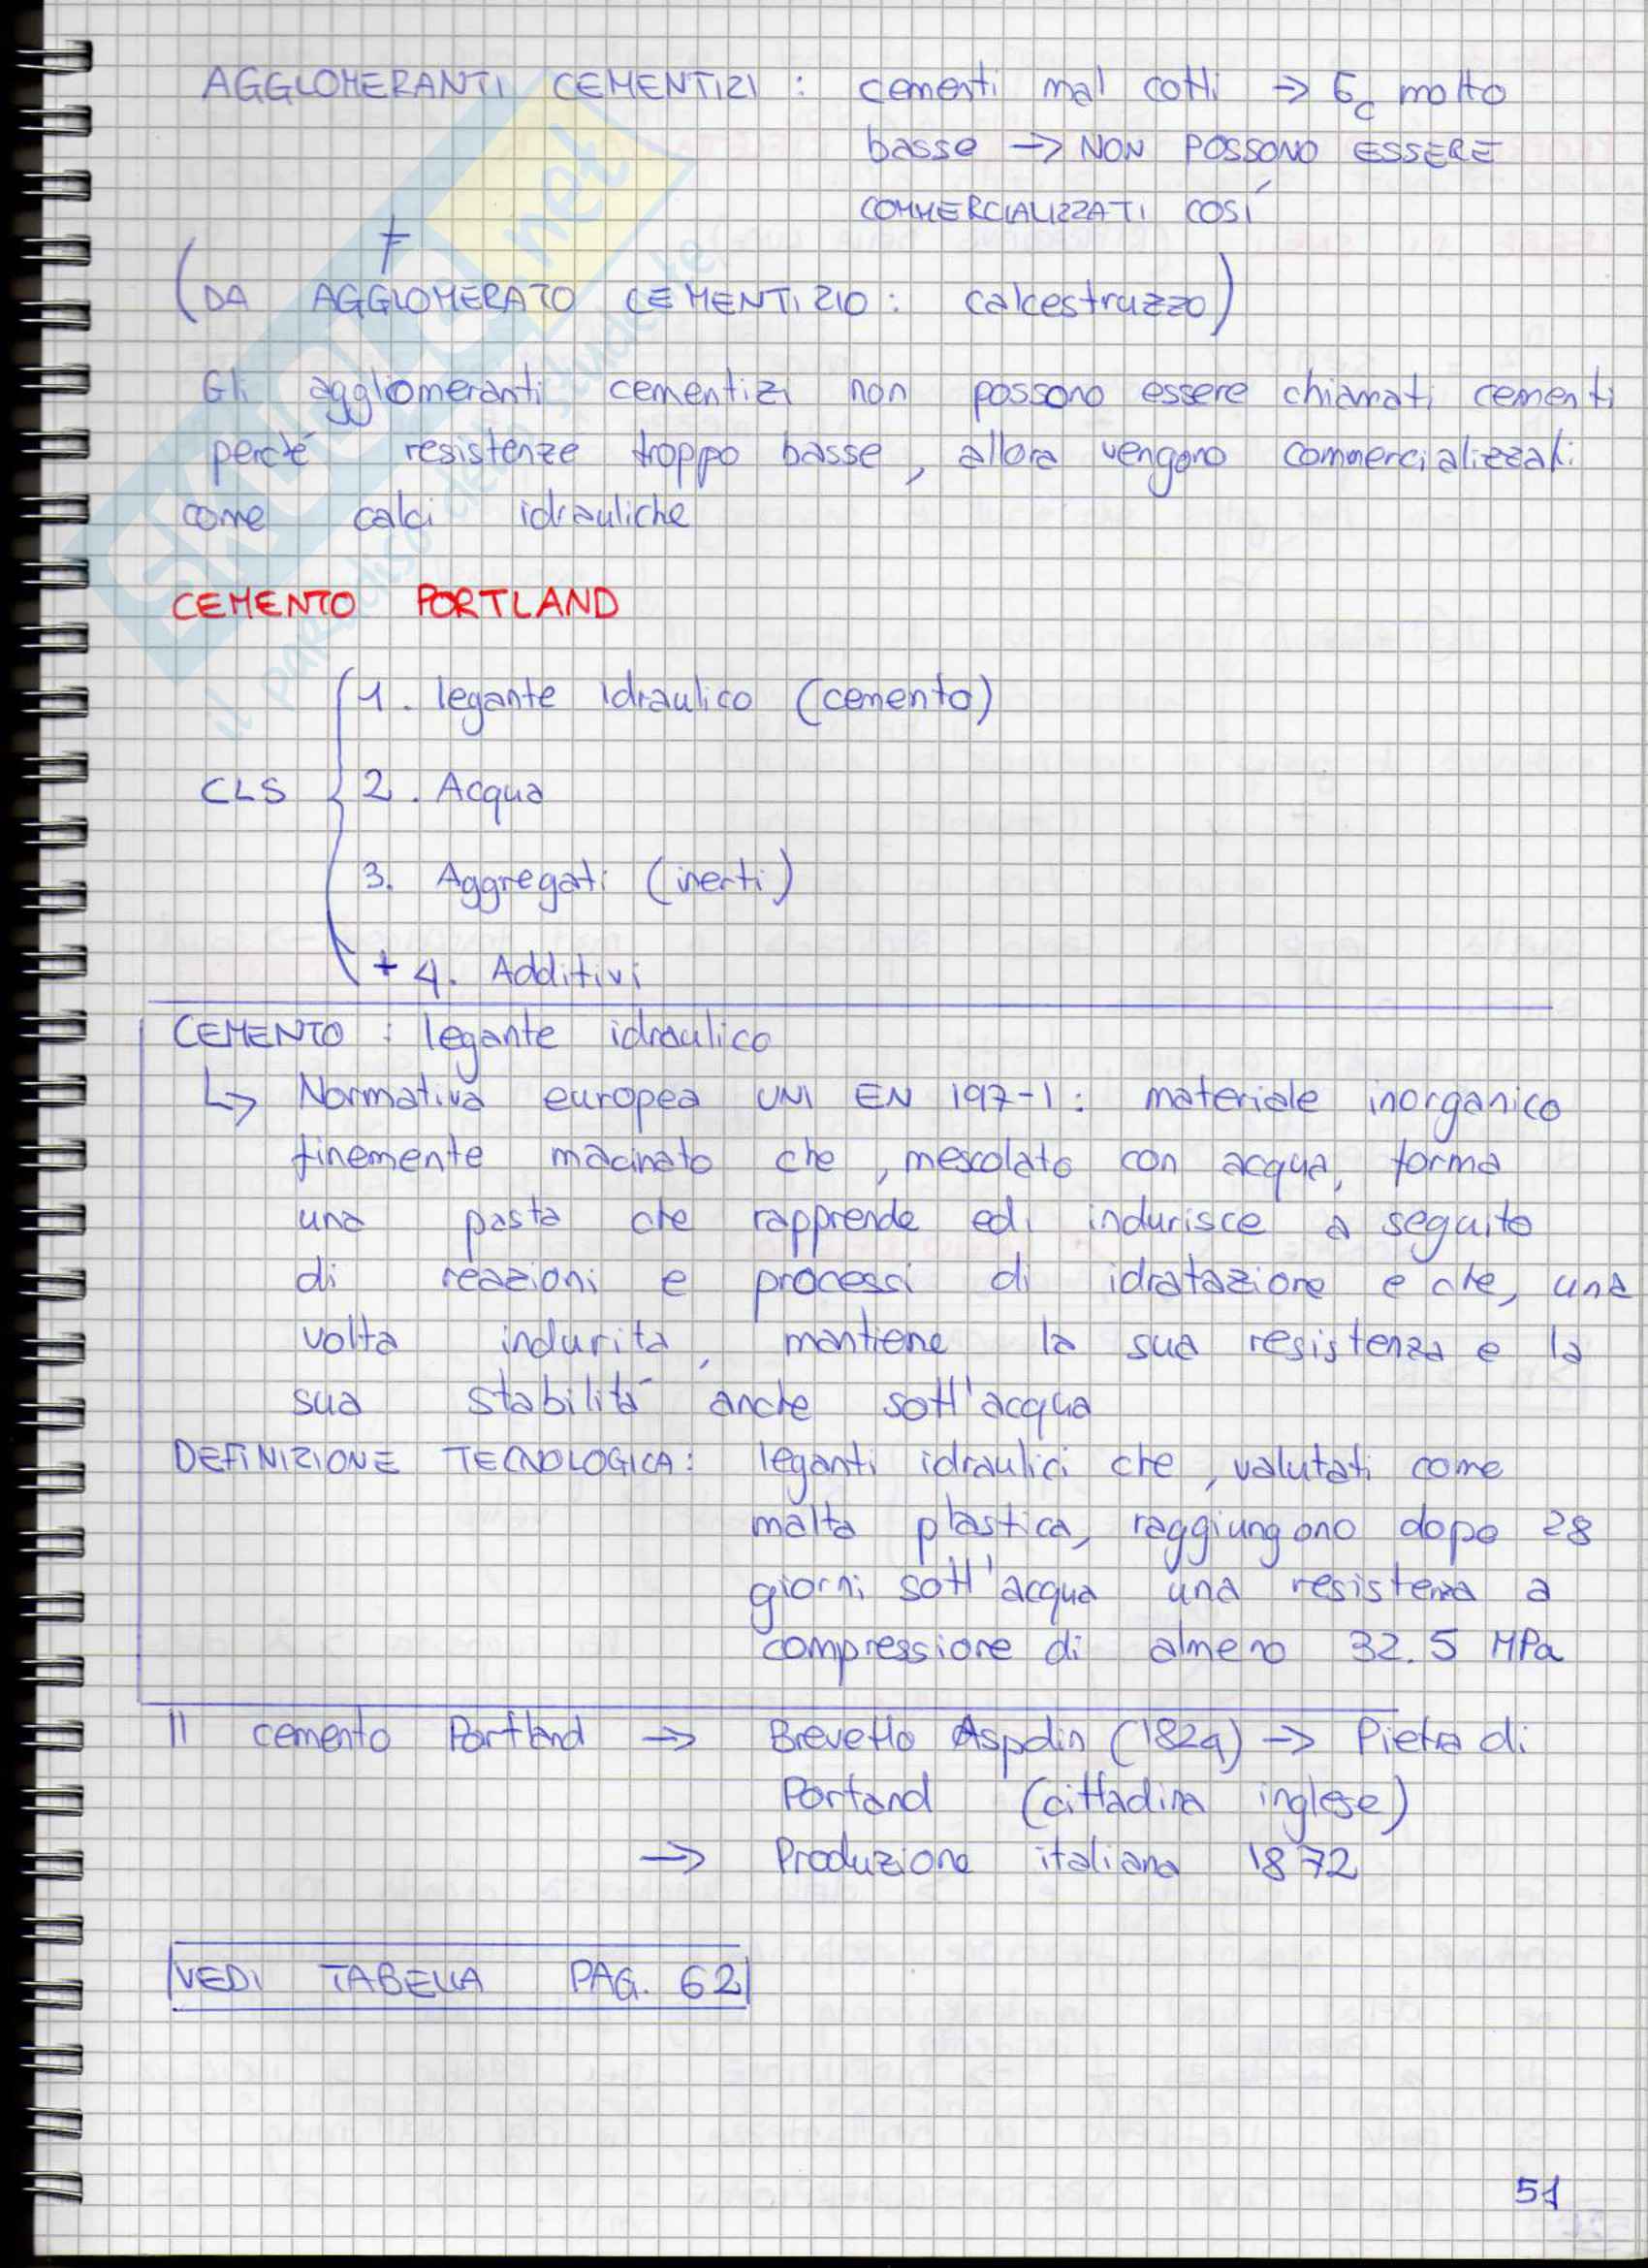 AGGLOMERANTI CEMENTIZI : cementi mal cotti → σc molto
basse → NON POSSONO ESSERE
COMMERCIALIZZATI COSÍ
≠
(DA AGGLOMERATO CEMENTIZIO : calcestruzzo)
Gli agglomeranti cementizi non possono essere chiamati cementi
perché resistenze troppo basse, allora vengono commercializzati
come calci idrauliche
CEMENTO PORTLAND
1. legante idraulico (cemento)
CLS 2. Acqua
3. Aggregati (inerti)
+ 4. Additivi
CEMENTO : legante idraulico
↳ Normativa europea UNI EN 197-1: materiale inorganico
finemente macinato che, mescolato con acqua, forma
una pasta che rapprende ed indurisce a seguito
di reazioni e processi di idratazione e che, una
volta indurita, mantiene la sua resistenza e la
sua stabilità anche sott'acqua
DEFINIZIONE TECNOLOGICA: leganti idraulici che, valutati come
malta plastica, raggiungono dopo 28
giorni sott'acqua una resistenza a
compressione di almeno 32.5 MPa
Il cemento Portland → Brevetto Aspdin (1824) → Pietra di
Portand (cittadina inglese)
→ Produzione italiana 1872
VEDI TABELLA PAG. 62
51
SKUOLA.net
il paradiso dello studente